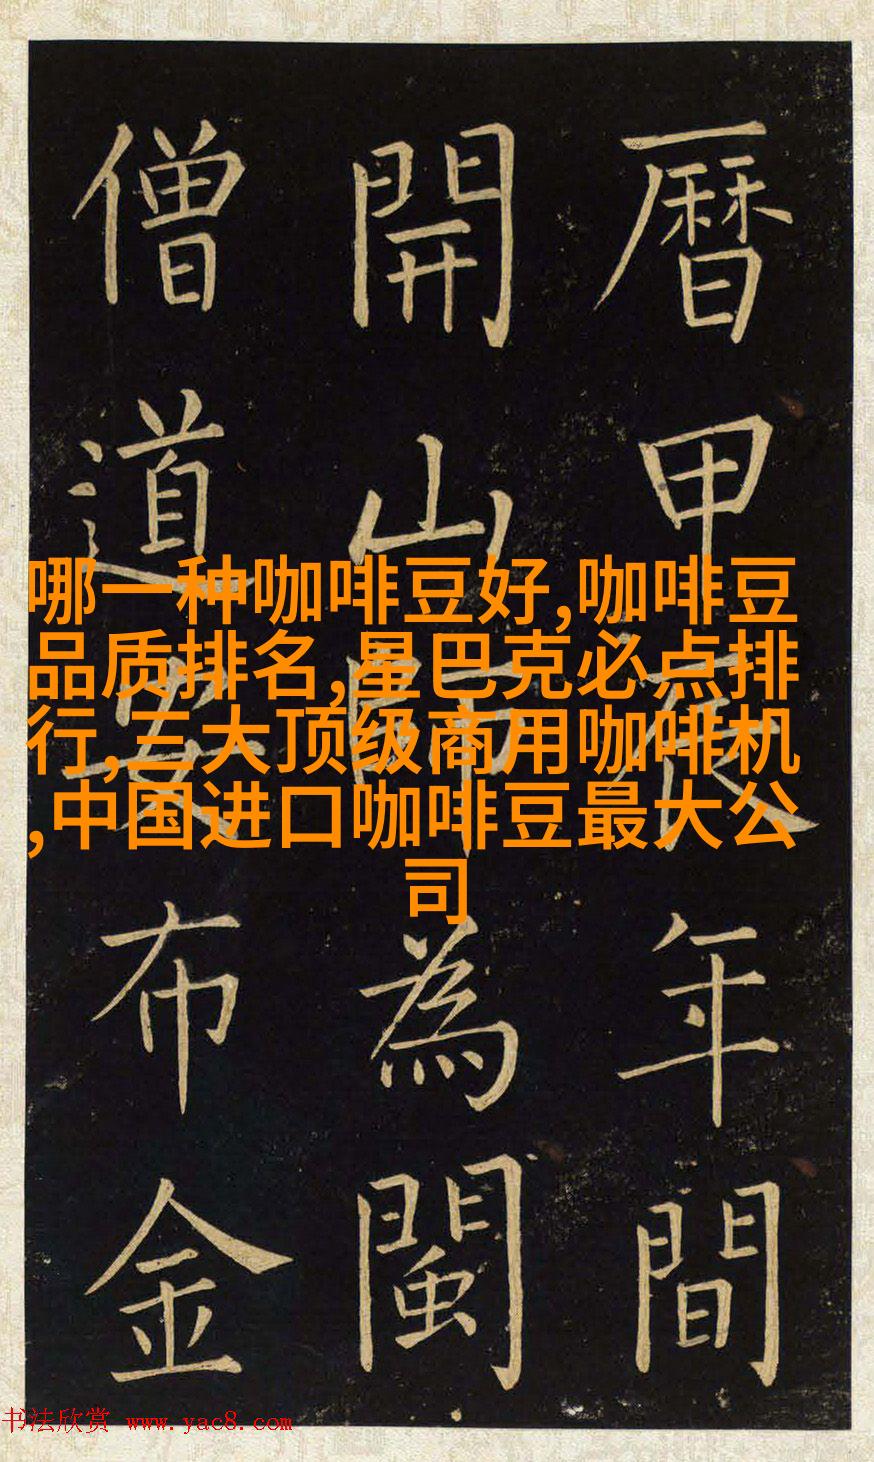 曆甲辰年間
開山師為閩
僧道布金
哪一种咖啡豆好,咖啡豆
品质排名,星巴克必点排
行,三大顶级商用咖啡机
,中国进口咖啡豆最大公
司
书法欣赏 www.yac8.com